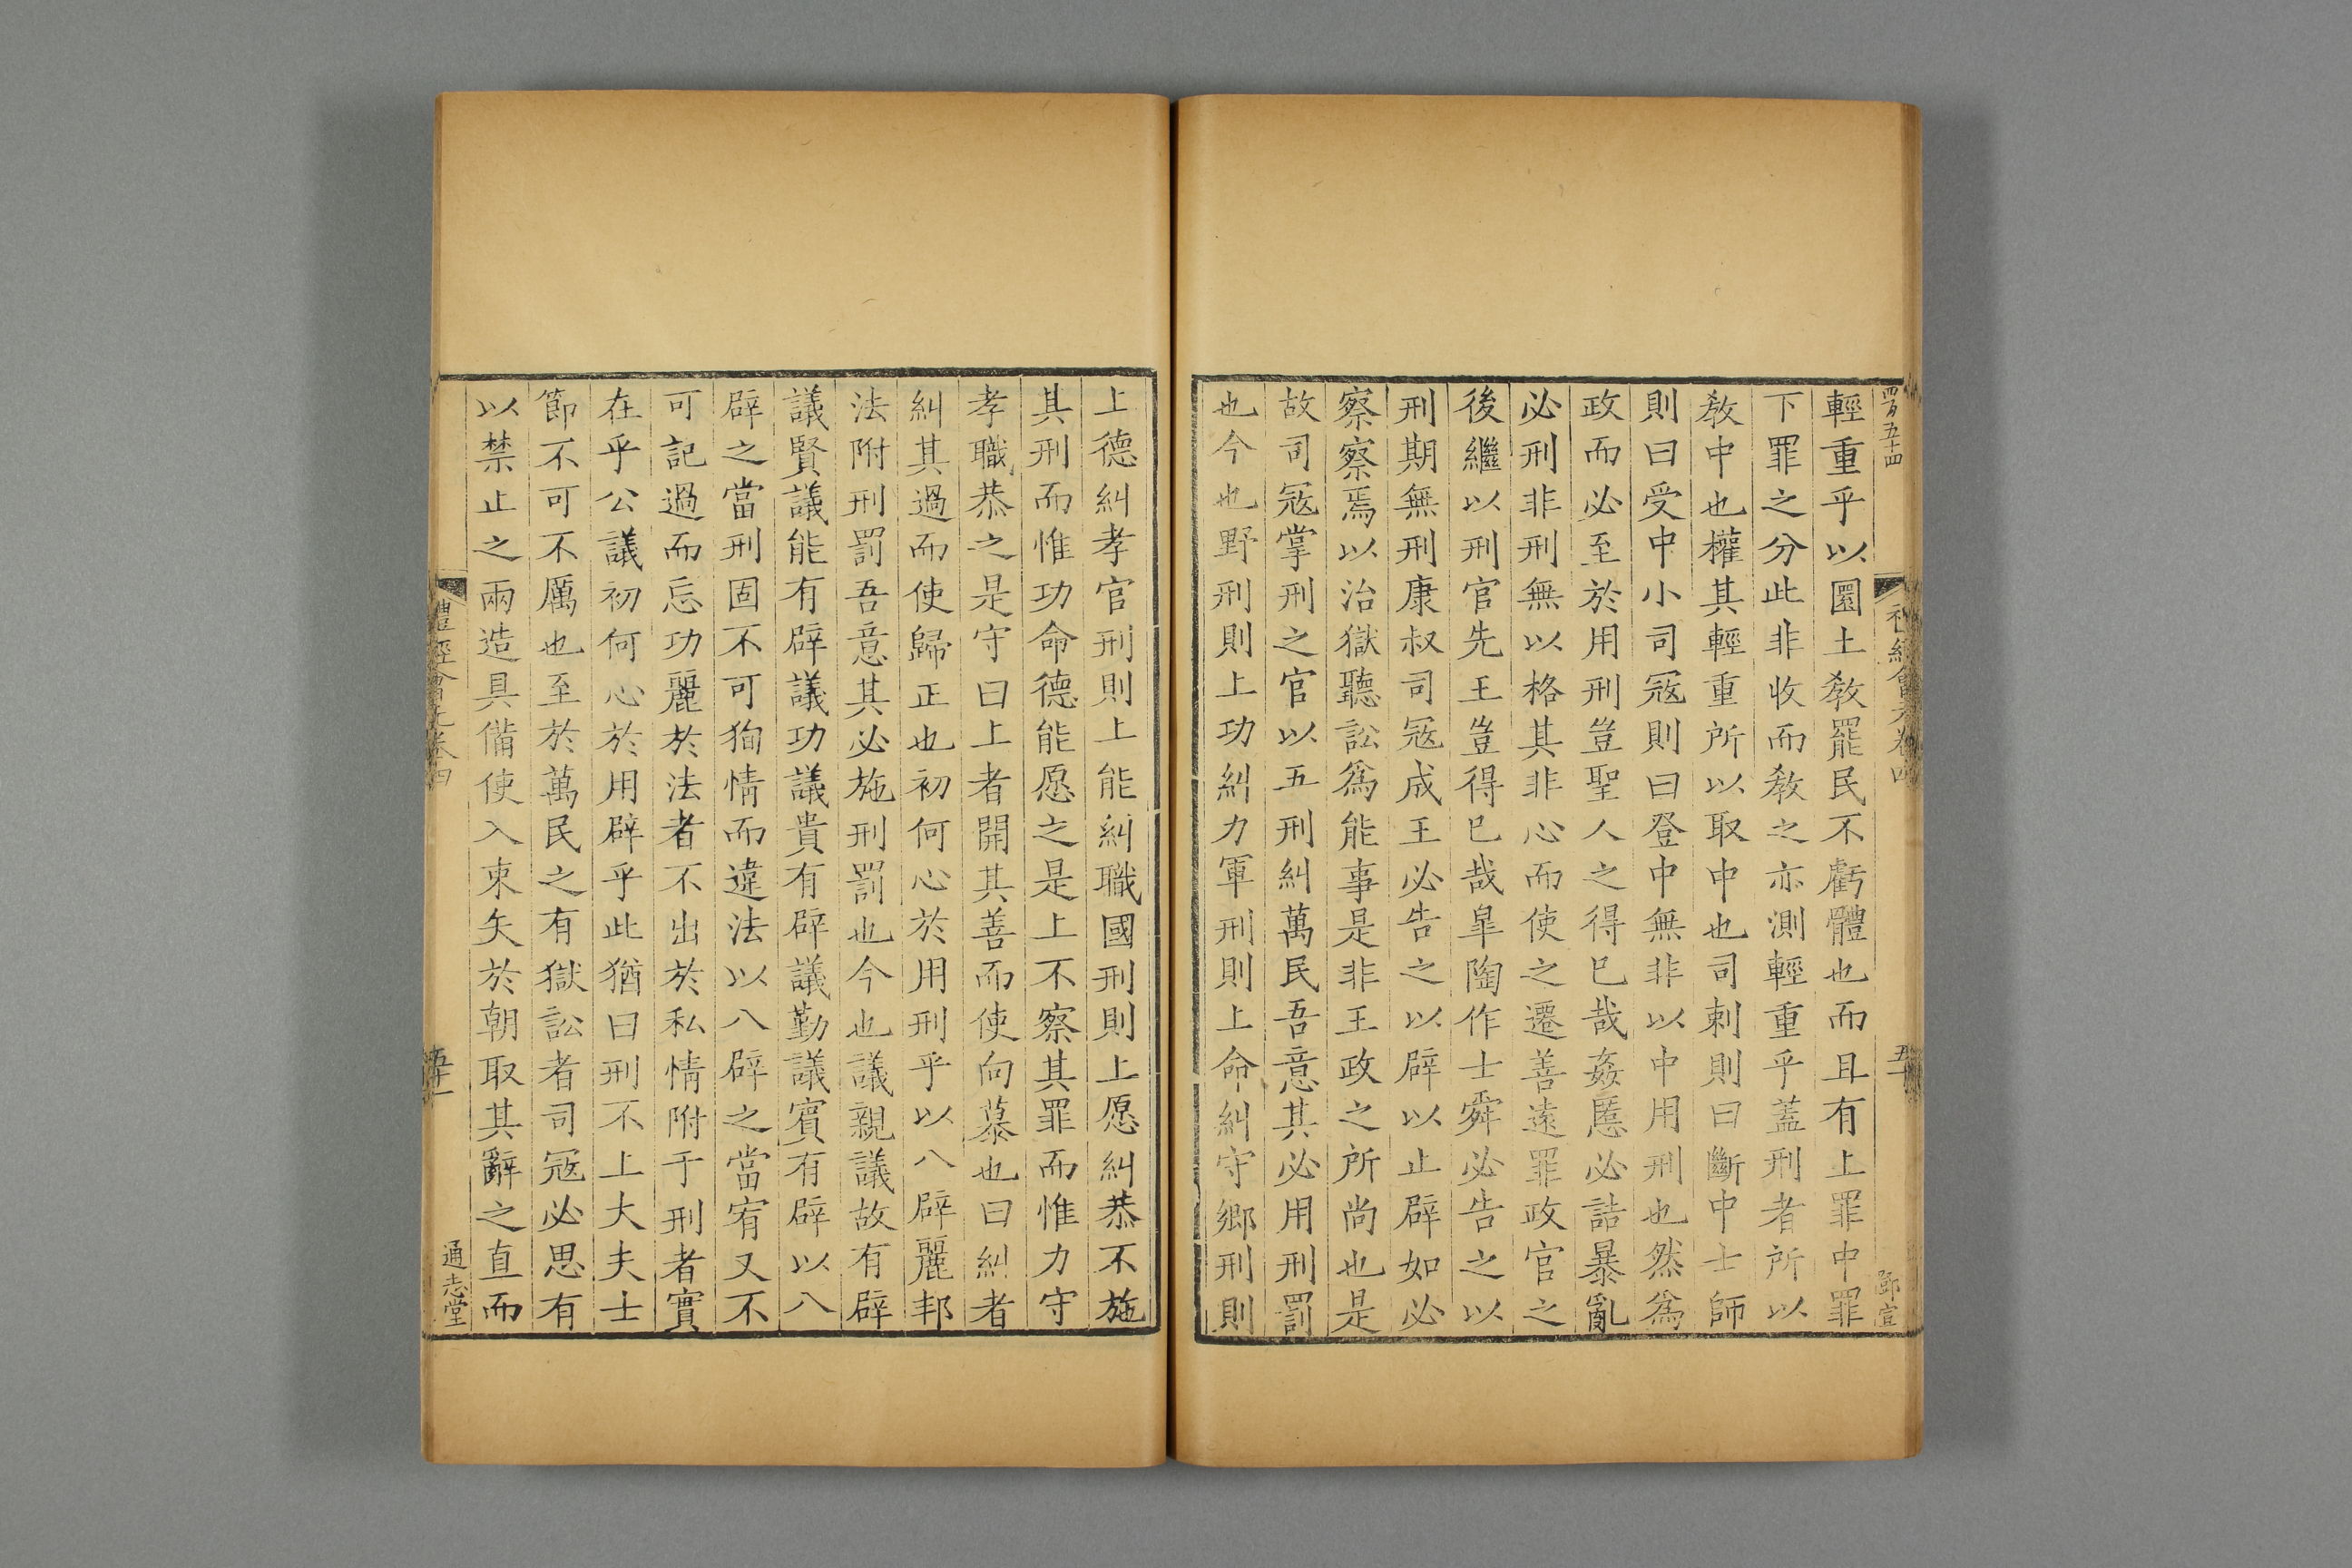 四百五十四
禮經會元卷四
五十
鄧宣
輕重乎以圜土教罷民不虧體也而且有上罪中罪
下罪之分此非收而教之亦測輕重乎蓋刑者所以
教中也權其輕重所以取中也司刺則曰斷中士師
則曰受中小司寇則曰登中無非以中用刑也然為
政而必至於用刑豈聖人之得已哉姦慝必詰暴亂
必刑非刑無以格其非心而使之遷善遠罪政官之
後繼以刑官先王豈得已哉皐陶作士舜必告之以
刑期無刑康叔司寇成王必告之以辟以止辟如必
察察焉以治獄聽訟爲能事是非王政之所尚也是
故司寇掌刑之官以五刑糾萬民吾意其必用刑罰
也今也野刑則上功糾力軍刑則上命糾守鄉刑則
上德糾孝官刑則上能糾職國刑則上愿糾恭不施
其刑而惟功命德能愿之是上不察其罪而惟力守
孝職恭之是守曰上者開其善而使向慕也曰糾者
糾其過而使歸正也初何心於用刑乎以八辟麗邦
法附刑罰吾意其必施刑罰也今也議親議故有辟
議賢議能有辟議功議貴有辟議勤議賓有辟以八
辟之當刑固不可狥情而違法以八辟之當宥又不
可記過而忘功麗於法者不出於私情附于刑者實
在乎公議初何心於用辟乎此猶曰刑不上大夫士
節不可不厲也至於萬民之有獄訟者司寇必思有
以禁止之兩造具備使入束矢於朝取其辭之直而
禮經會元卷四
五十一
通志堂